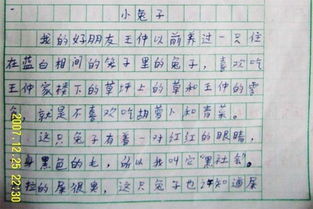 小兔子
我的好朋友王仲以前养过一只住
在蓝白相间的笼子里的兔子,喜欢吃
王仲家楼下的草坪上的草和王仲的零
食,就是不喜欢吃胡萝卜和青菜。
这只兔子有着一对红红的眼睛,
身黑色的毛,所以我叫它“黑社会”。
拉的屎很臭,这只兔子也不知道屎
2007.12.25 22:30